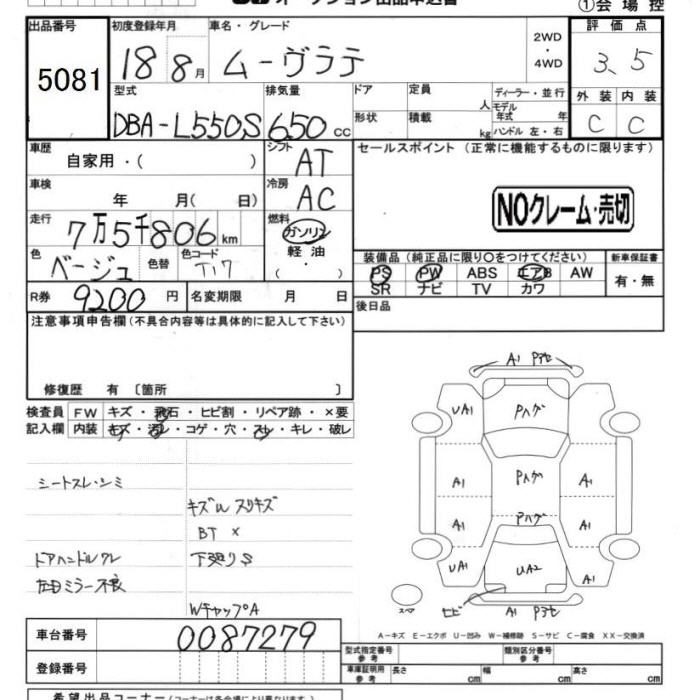 オークション出品申込書
①会場控
出品番号 初度登録年月 車名・グレード 2WD ・ 4WD 評価点
5081 18 8月 ムーヴラテ 3.5
型式 排気量 ドア 定員 人 ディーラー・並行 外装 内装
DBA-L550S 650 cc 形状 積載 kg モデル年式 年 ハンドル 左・右 C C
車歴 自家用・( ) シフト AT セールスポイント (正常に機能するものに限ります)
車検 年 月( 日) 冷房 AC NOクレーム・売切
走行 7万5千806km 燃料 ガソリン
軽油・( )
色 ベージュ 色替 色コード T17
装備品(純正品に限り○をつけてください) 新車保証書
PS PW ABS エアB AW 有・無
SR ナビ TV カワ
R券 9200円 名変期限 月 日 後日品
注意事項申告欄(不具合内容等は具体的に記入して下さい)
修復歴 有 〔箇所 〕
検査員 FW キズ・飛石・ヒビ割・リペア跡・×要
記入欄 内装 キズ・汚レ・コゲ・穴・スレ・キレ・破レ
シートスレ・シミ
キズW スリキズ
BT ×
ドアハンドルワレ 下廻りS
左ミラー不良
WキャップA
A1 Pアセ
UA1 Pハゲ A1
A1 Pハゲ A1
A1 Pハゲ A1
UA1 UA2 A1
スペア ヒビ A1 Pアセ
A-キズ E-エクボ U-凹み W-補修跡 S-サビ C-腐食 XX-交換済
車台番号 0087279
型式指定番号 参考 類別区分番号 参考
登録番号 車庫証明用 参考 長さ cm 幅 cm 高さ cm
希望出品コーナー(コーナーは各会場により異なります。)